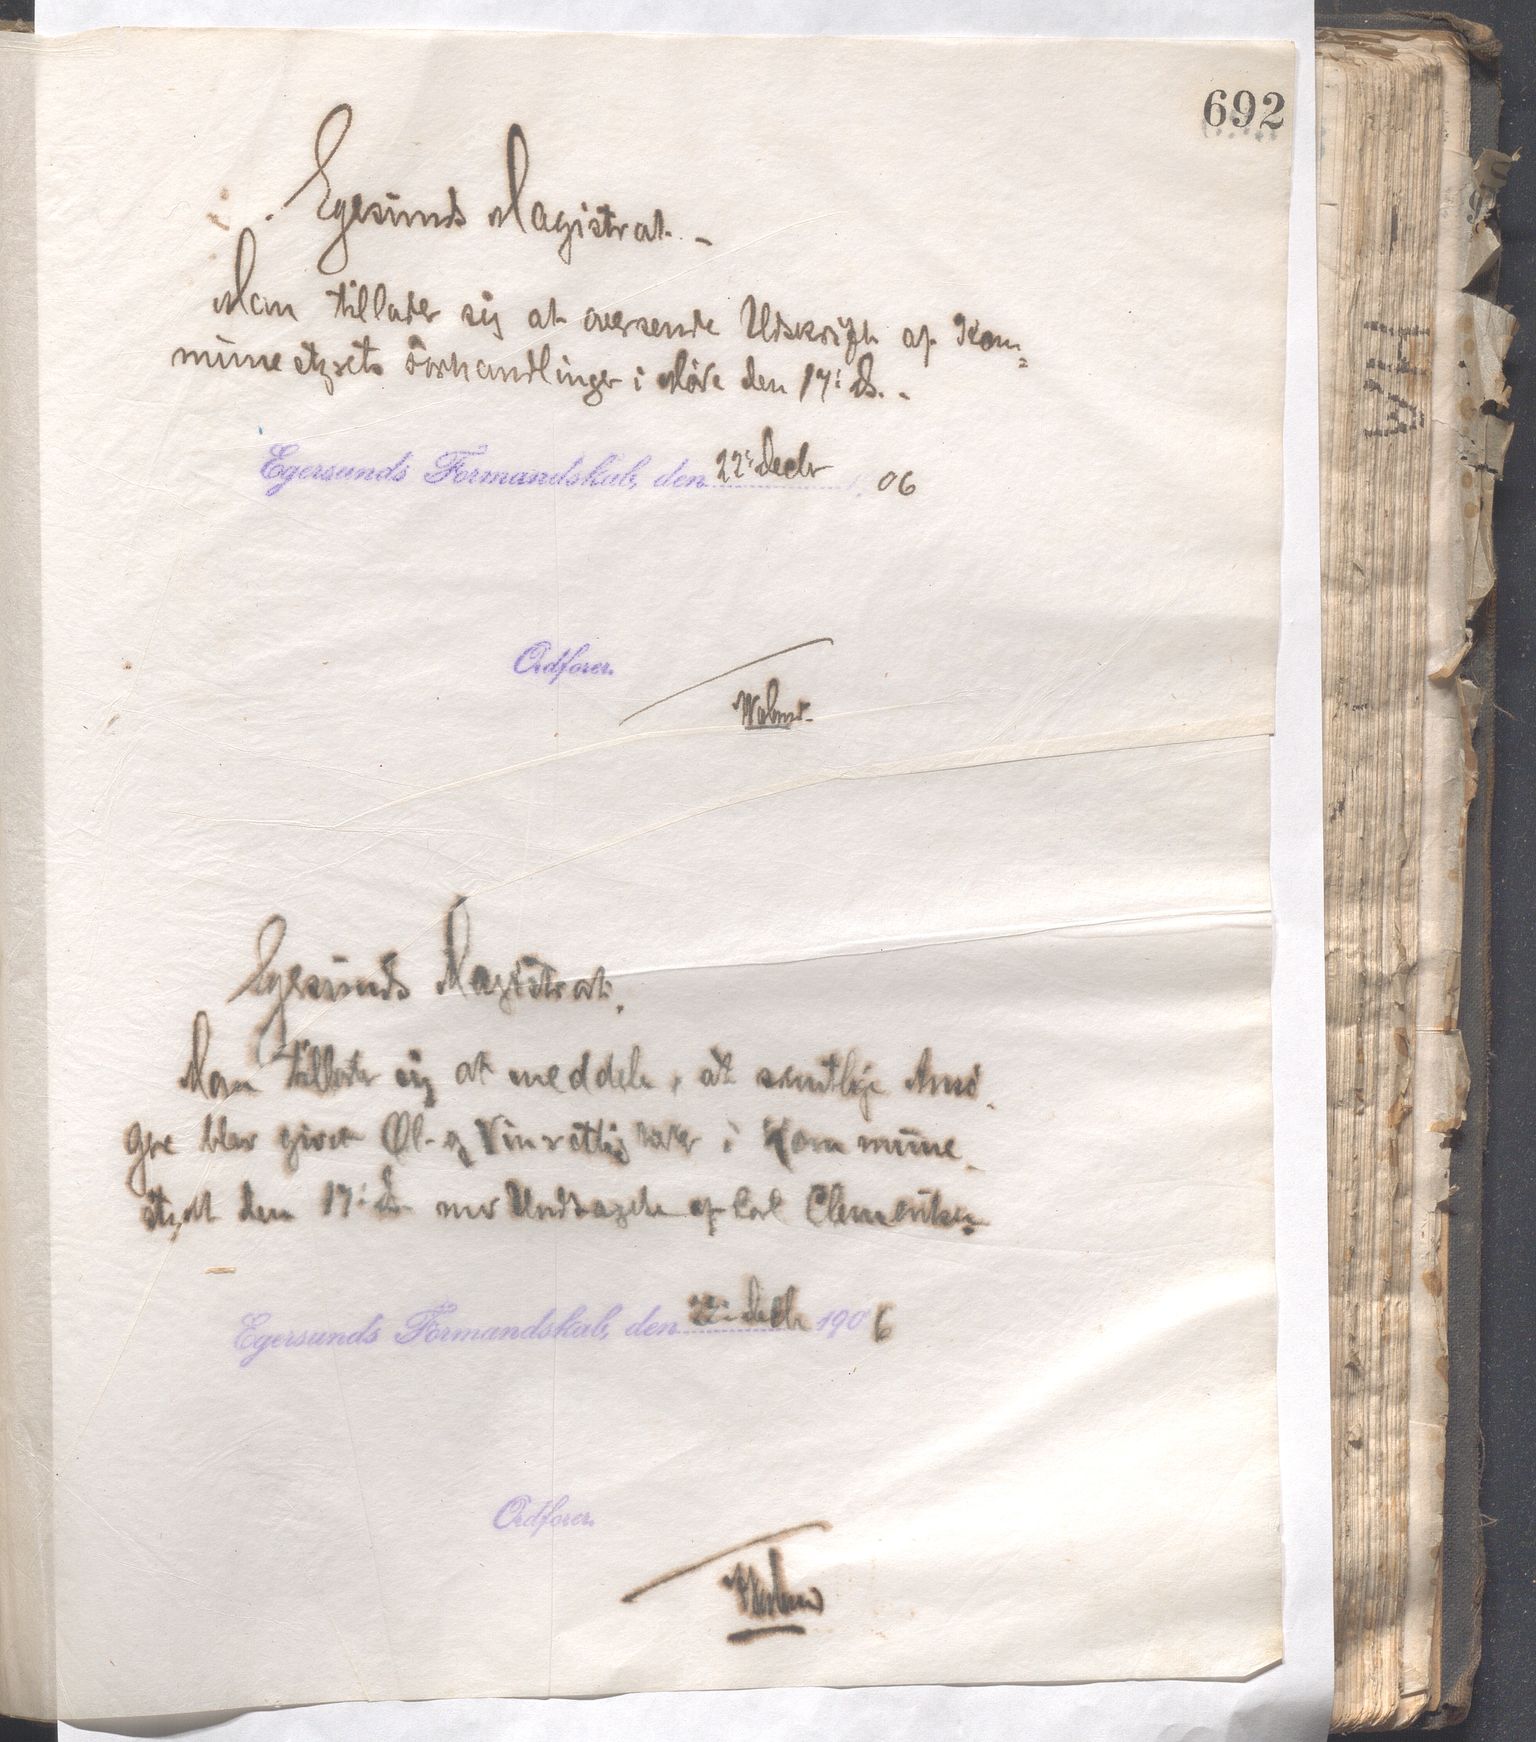 692
Egersunds Magistrat. -
Man tillader sig at oversende Udskrift af Kom-
munestyrets Forhandlinger i Møde den 17: ds. -
Egersunds Formandskab, den 22: Decbr 06
Ordfører.
Egersunds Magistrat.
Man tillader sig at meddele, at samtlige Ansø-
gere blev givet Øl- og Vinrettigheder i Kommune-
styret den 17: ds. med Undtagelse af Carl Clementsen.
Egersunds Formandskab, den 22: Decbr 1906
Ordfører.